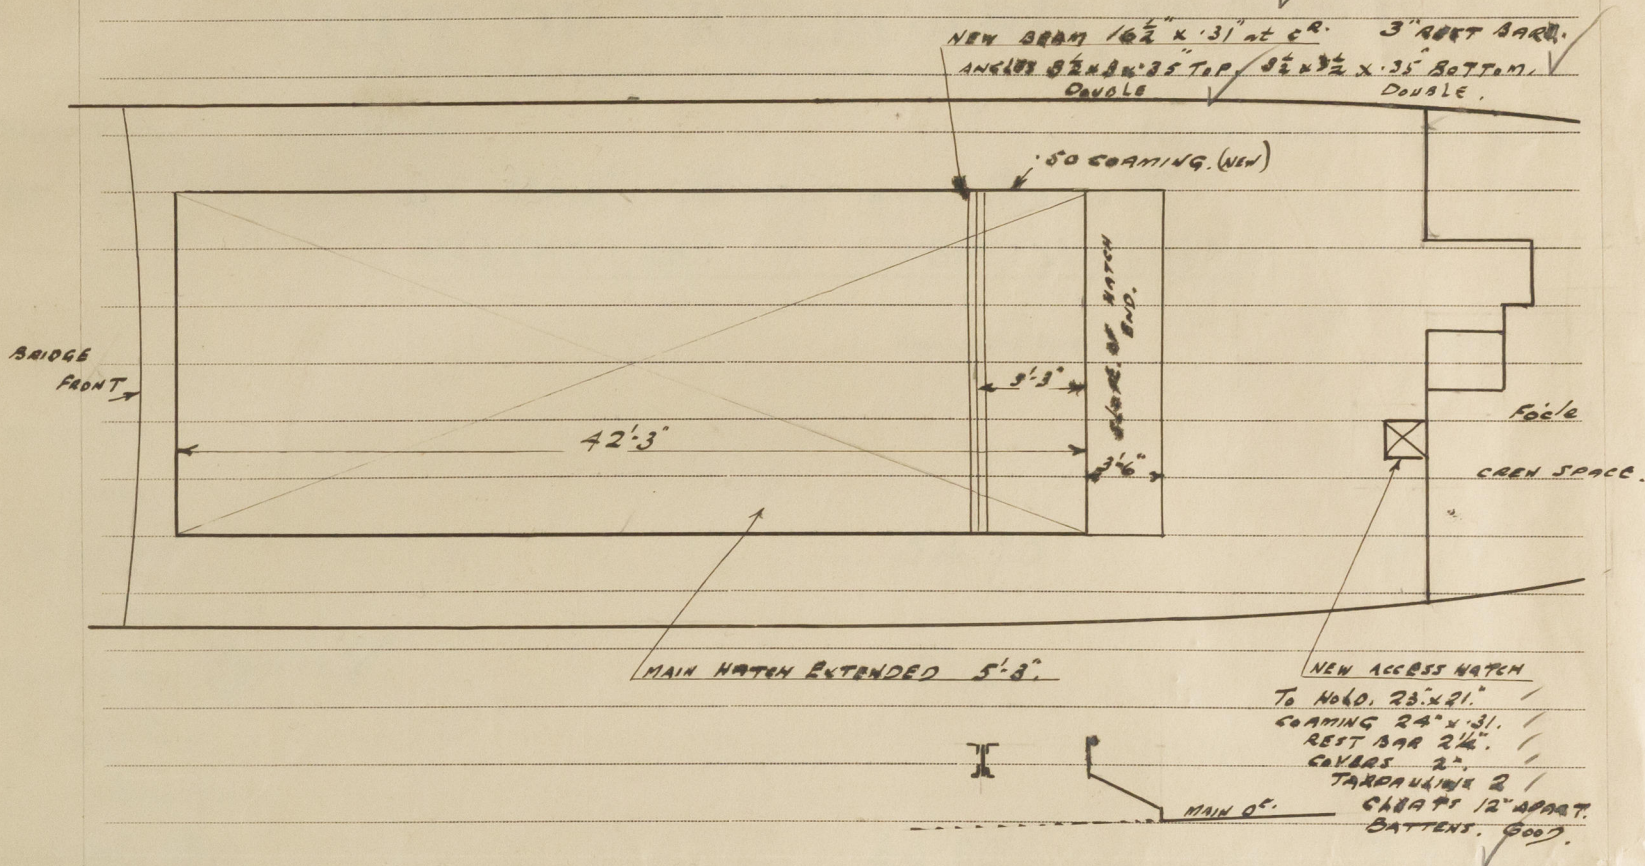 NEW BEAM 16½" x .31" at CR. 3" REST BARS.
ANGLES 3½ x 3 x .35 TOP, 3½ x 3½ x .35 BOTTOM.
DOUBLE DOUBLE.
.50 COAMING. (NEW)
SLOPE OF HATCH
END.
BRIDGE
FRONT
3'-3"
42'-3"
3'-6"
Focle
CREW SPACE.
MAIN HATCH EXTENDED 5'-3".
NEW ACCESS HATCH
TO HOLD. 23" x 21".
COAMING 24" x .31.
REST BAR 2½".
COVERS 2".
TARPAULINS 2
CLEATS 12" APART.
BATTENS. GOOD.
MAIN DK.